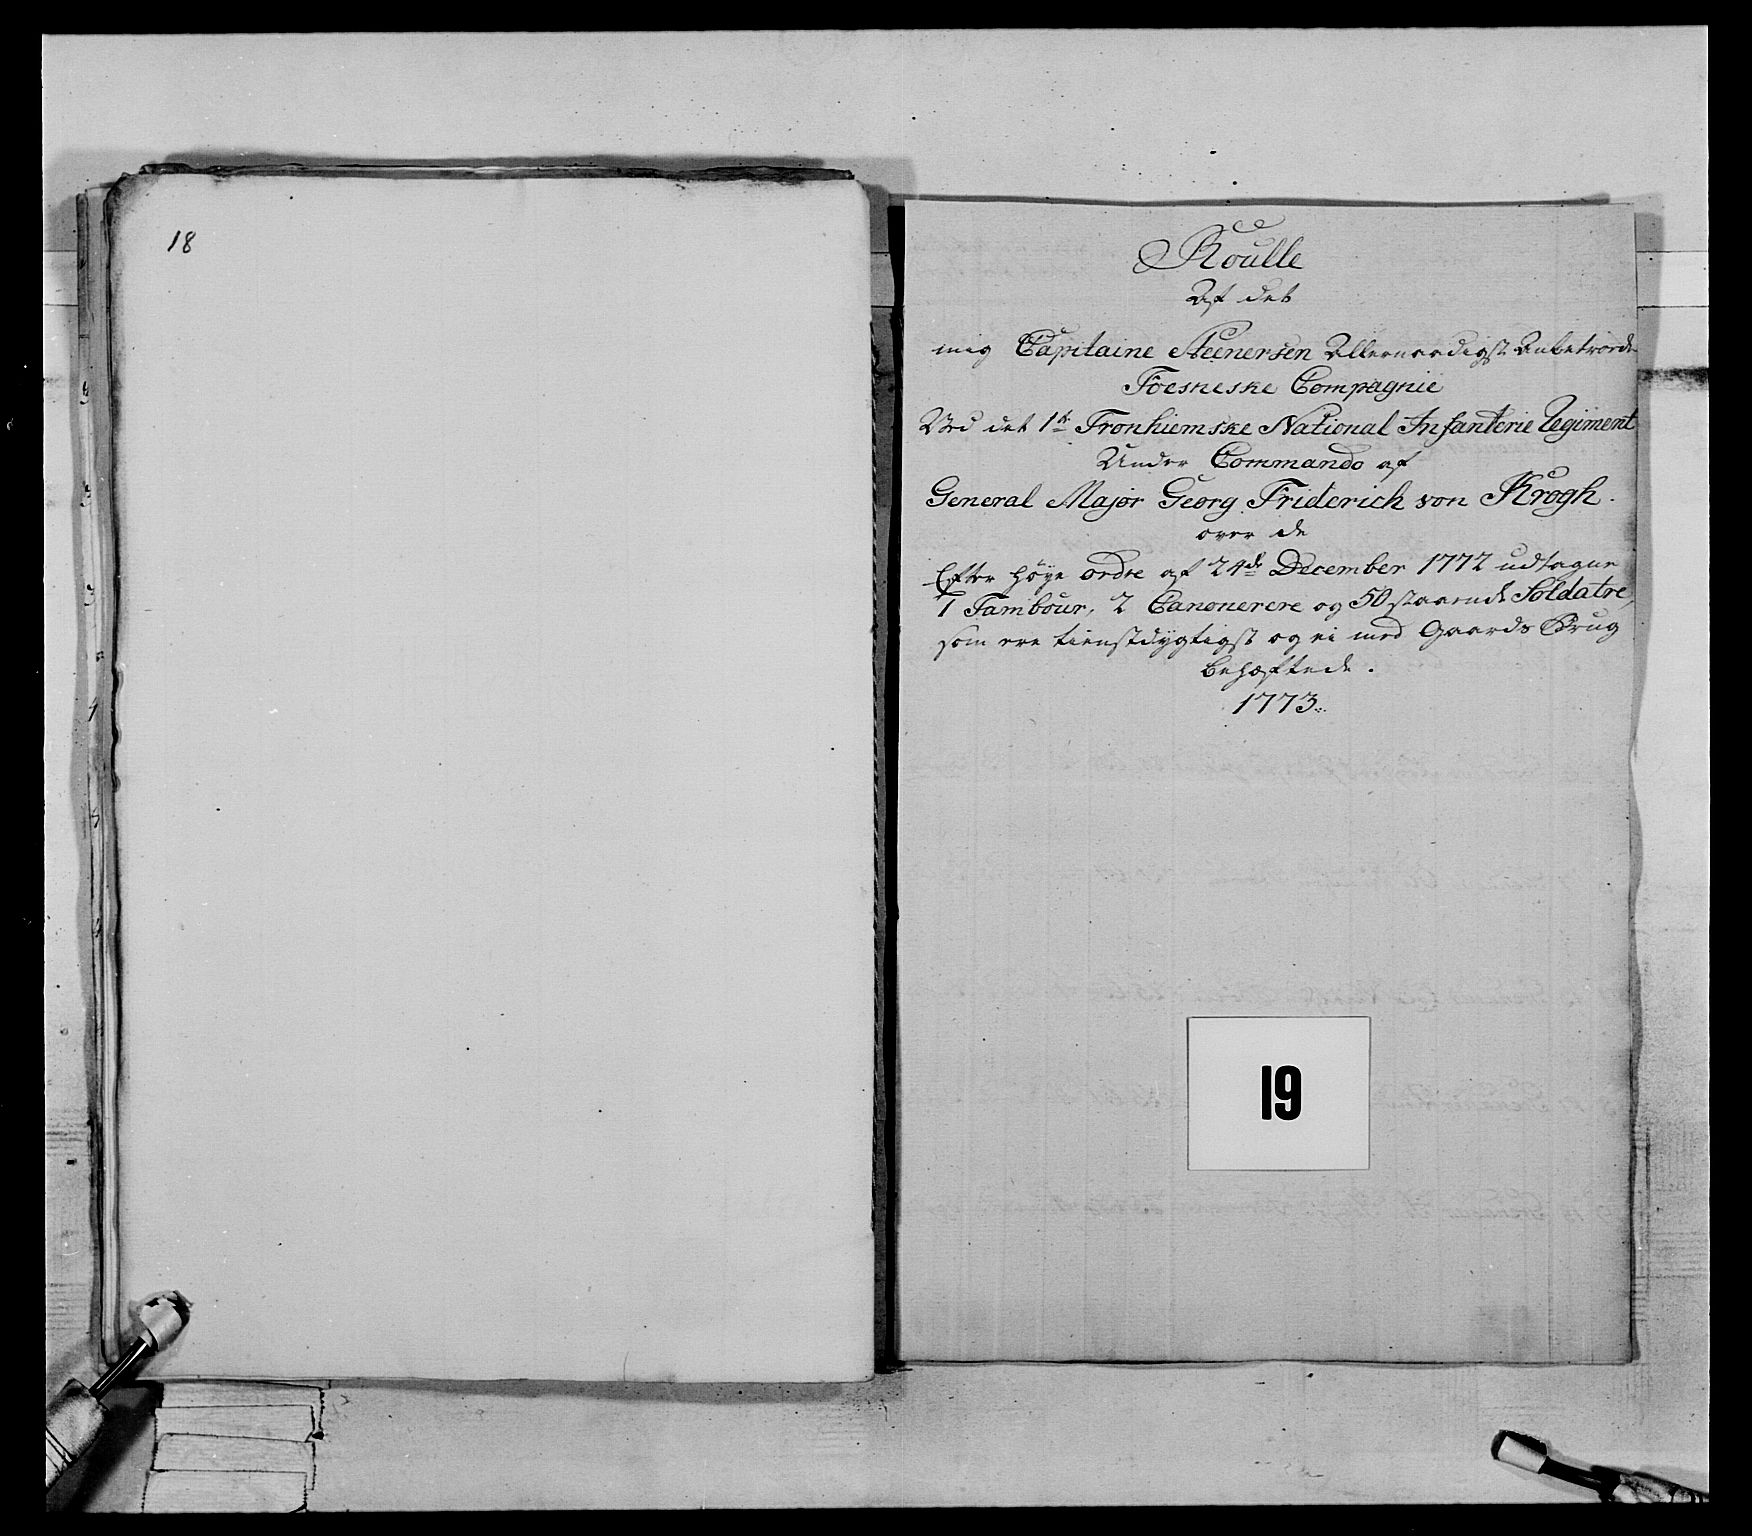 18
Roulle
Af det
mig Capitaine Steenersen Allernaadigst Anbetroede
Foesneske Compagnie
Ved det 1te Tronhiemske National Infanterie Regiment
Under Commando af
General Major Georg Friderich von Krogh.
over de
Efter høye ordre af 24de December 1772 udtagne
1 Tambour, 2 Canonerere og 50 staaende Soldatre,
som ere tienstdygtigst og ei med Gaards Brug
behæftede.
1773
19